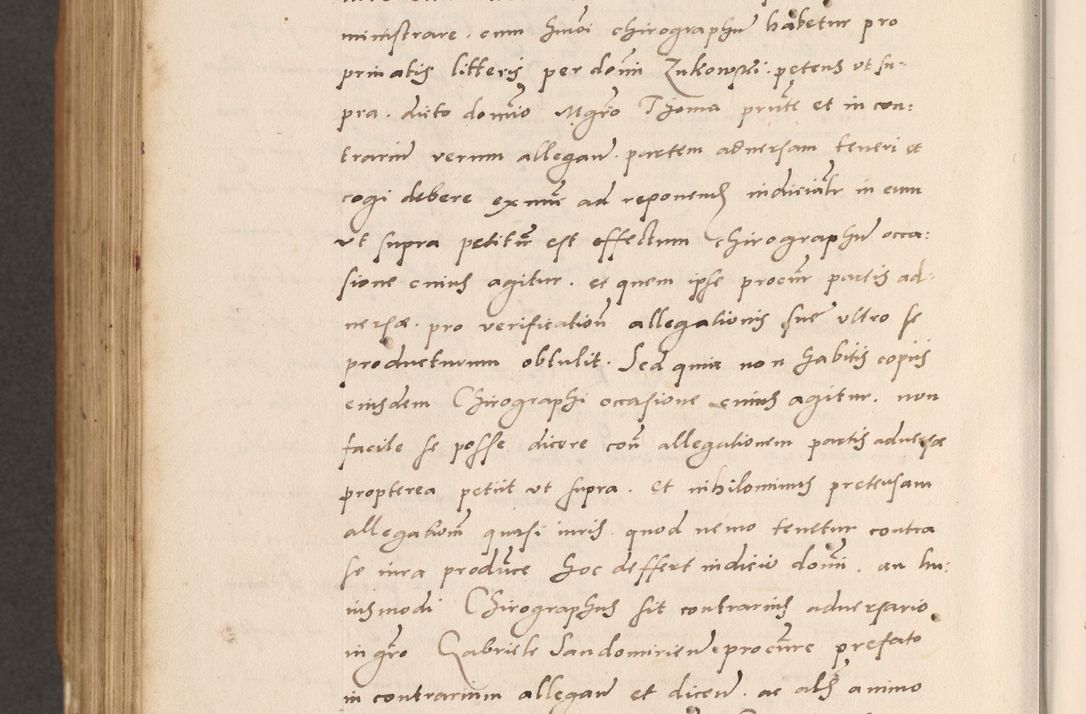 ministrare. cum hmoi chirographū habetur pro
priuatis litteris per domī Zukowski. petens vt su-
pra. dicto domīo Mgrō Thoma pn̄te et in con:
trariū verum allegan̄. partem aduersam teneri et
cogi debere ex nūc ad reponend̄ iudicialr̄ in eum
vt supra petitur est effectum chirographū occa:
sione cuius agitur. et quem ipse procur̄ partis ad-
uersæ. pro verification̄ allegationis suæ vltro se
producturum obtulit. Sed quia non habitis copiis
eiusdem Chirographi occasione cuius agitur. non
facile se posse dicere con̄ allegationem partis aduersæ
propterea petiit vt supra. Et nihilominus pretensam
allegationē quasi iuris quod nemo tenetur contra
se iura produce hoc deffert iudicio domī. an hu:
iusmodi Chirographus sit contrarius aduersario
mgrō Gabriele Sandomirien̄ procure prefato
in contrarium allegan̄ et dicen̄. ac als̄ animo